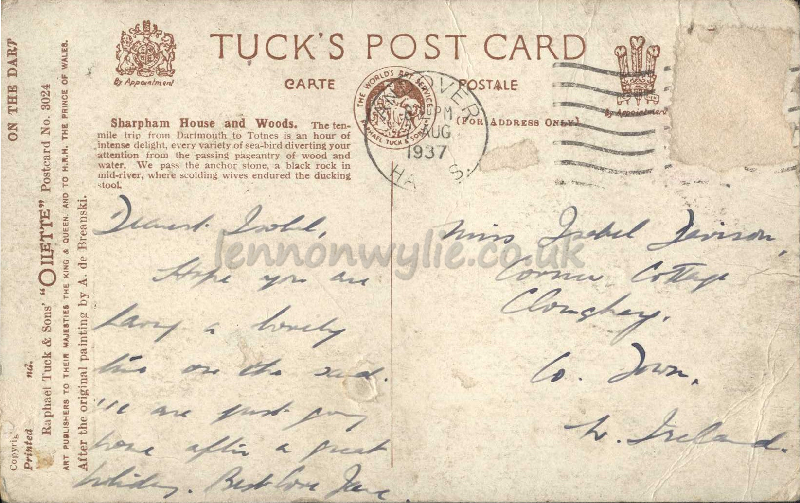 TUCK'S POST CARD
CARTE POSTALE
By Appointment
By Appointment
(FOR ADDRESS ONLY)
THE WORLD'S ART SERVICE
RAPHAEL TUCK & SONS
PM
AUG
1937
HA S.
Sharpham House and Woods. The ten-
mile trip from Dartmouth to Totnes is an hour of
intense delight, every variety of sea-bird diverting your
attention from the passing pageantry of wood and
water. We pass the anchor stone, a black rock in
mid-river, where scolding wives endured the ducking
stool.
Dearest Isobel,
Hope you are
having a lovely
time on the sand.
We are just going
home after a great
holiday. Best love Jane
Miss Isabel Davison,
Corner Cottage
Cloughey,
Co. Down,
N. Ireland.
lennonwylie.co.uk
ON THE DART
Raphael Tuck & Sons' "OILETTE" Postcard No. 3024
ART PUBLISHERS TO THEIR MAJESTIES THE KING & QUEEN, AND TO H.R.H. THE PRINCE OF WALES.
After the original painting by A. de Breanski.
Copyrig
Printed nd.